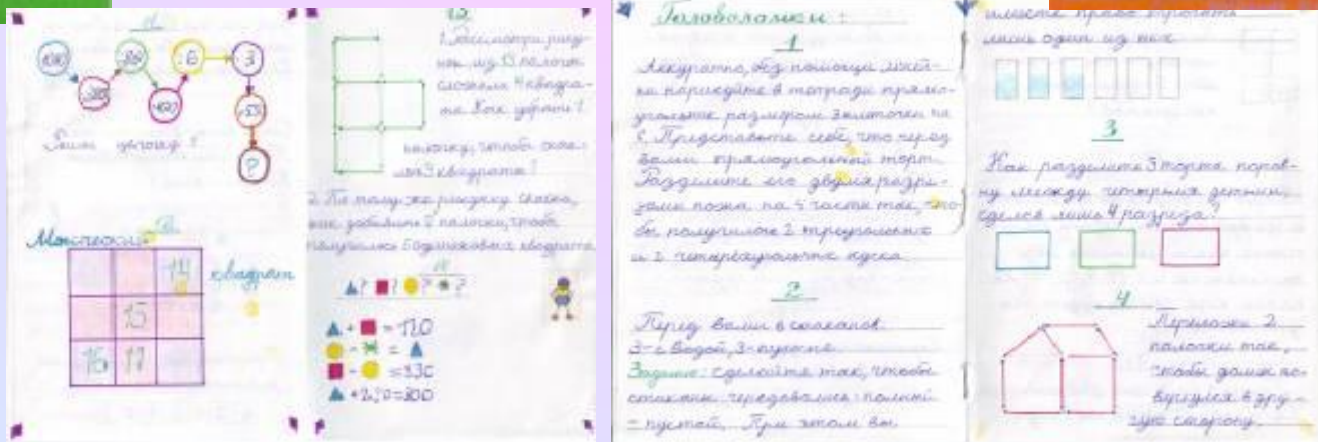 Реши цепочку
Магический
квадрат
14
15
16 17
1. Рассмотри рису-
нок из 13 палочек
сложили 4 квадра-
та. Как убрать 1
палочку, чтобы оста-
лось 3 квадрата?
2. По тому же рисунку скажи,
как добавить палочки, чтобы
получилось 5 одинаковых квадратов
▲? ■? ●? *?
▲ + ■ = 120
● - * = ▲
■ - ● = 330
▲ + 250 = 300
Головоломки:
1
Аккуратно, без помощи линей-
ки нарисуйте в тетради прямо-
угольник размером 3 клеточки на
6. Представьте себе, что перед
вами прямоугольный торт.
Разделите его двумя разре-
зами ножа на 4 части так, что-
бы получилось 2 треугольных
и 2 четырехугольных куска.
2
Перед вами 6 стаканов.
3-с водой, 3-пустые.
Задание: сделайте так, чтобы
стаканы чередовались: полный
- пустой. При этом вы
имеете право трогать
лишь один из них
3
Как разделить 3 торта поров-
ну между четырьмя детьми,
сделав лишь 4 разреза?
4
Переложи 2
палочки так,
чтобы домик по-
вернулся в дру-
гую сторону.